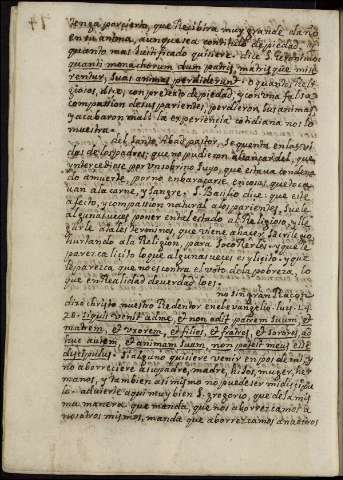 tenga por cierto, que Recibira muy grande daño
en su anima, aunque sea con titulo de piedad
quanto mas Santificado quisiere dize S. Geronimo
quanti monachorum dum patris, matrisque mise
rentur, suas animas perdiderunt! o quantos Reli
giosos, dize, con pretexto de piedad, y con una falsa
compassion de sus parientes, perdieron sus animas
y acabaron mal! la experiencia cotidiana nos lo
muestra.
del Santo Abad pastor, se quenta en las vi
das de los padres, que no pudieron alcançar del, que
intercediese por un sobrino suyo, que estava condena
do a muerte por no embaraçarse en cosas, que toca
van a la carne, y sangre. S. Basilio dice: que este
afecto, y compassion natural a los parientes, suele
algunas veces poner en tal estado al Religioso, y lle
garle a tales terminos, que viene a hazer sacrilegio
hurtando a la Religion, para socorrerles: y que le
paresca licito lo que algunas veces es ylicito: y que
le paresca que no es contra el voto de la pobreza, lo
que en Realidad de verdad lo es.
no sin gran Raçon
dixo christo nuestro Redentor en el evangelio. luc. 14
26. Si quis venit ad me, et non odit patrem suum, et
matrem, et uxorem, et filios, et fratres, et sorores, ad
huc autem, et animam suam, non potest meus esse
discipulus. Si alguno quisiere venir en pos de mi, y
no aborreciere a su padre, madre, hijos, muger, her
manos, y tambien a si mismo no puede ser mi discipu
lo. advierte aqui muy bien S. gregorio, que de la mis
ma manera que manda, que nos aborrezcamos a
nosotros mismos, manda que aborrezcamos a nuestros